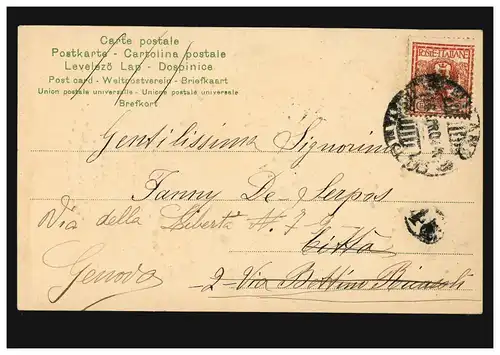 Carte postale
Postkarte - Cartolina postale
Levelező Lap - Dopisnice
Post card - Weltpostverein - Briefkaart
Union postale universelle - Unione postale universale
Brefkort
POSTE ITALIANE
Gentilissima Signorina
Fanny De-Serpos
Via della Libertà N. 7-9
Città
Genova
2-Via Bettino Ricasoli